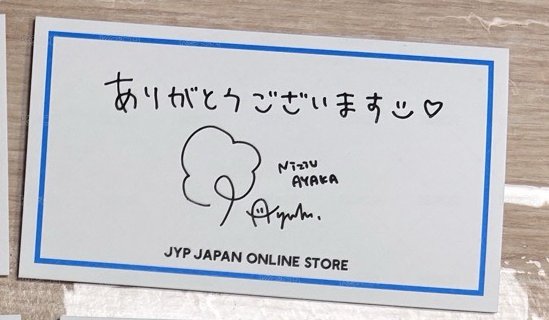 ありがとうございます
NiziU
AYAKA
JYP JAPAN ONLINE STORE